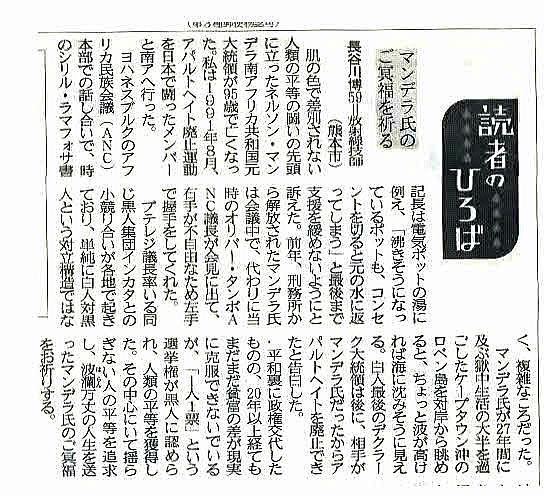 読者のひろば
マンデラ氏の
ご冥福を祈る
長谷川博59=放射線技師
(熊本市)
肌の色で差別されない
人類の平等の闘いの先頭
に立ったネルソン・マン
デラ南アフリカ共和国元
大統領が95歳で亡くなっ
た。私は1991年8月、
アパルトヘイト廃止運動
を日本で闘ったメンバー
と南アへ行った。
ヨハネスブルクのアフ
リカ民族会議(ANC)
本部での話し合いで、時
のシリル・ラマフォサ書
記長は電気ポットの湯に
例え、「沸きそうになっ
ているポットも、コンセ
ントを切ると元の水に返
ってしまう」と最後まで
支援を緩めないようにと
訴えた。前年、刑務所か
ら解放されたマンデラ氏
は会議中で、代わりに当
時のオリバー・タンボA
NC議長が会見に出て、
右手が不自由なため左手
で握手をしてくれた。
ブテレジ議長率いる同
じ黒人集団インカタとの
小競り合いが各地で起き
ており、単純に白人対黒
人という対立構造ではな
く、複雑なころだった。
マンデラ氏が27年間に
及ぶ獄中生活の大半を過
ごしたケープタウン沖の
ロベン島を対岸から眺め
ると、ちょっと波が高け
れば海に沈みそうに見え
る。白人最後のデクラー
ク大統領は後に、相手が
マンデラ氏だったからア
パルトヘイトを廃止でき
たと告白した。
平和裏に政権交代した
ものの、20年以上経ても
まだまだ貧富の差が現実
に克服できないでいる
が、「1人1票」という
選挙権が黒人に認めら
れ、人類の平等を獲得し
た。その中心にいて揺ら
ぎない人の平等を追求
し、波瀾万丈の人生を送
ったマンデラ氏のご冥福
をお祈りする。